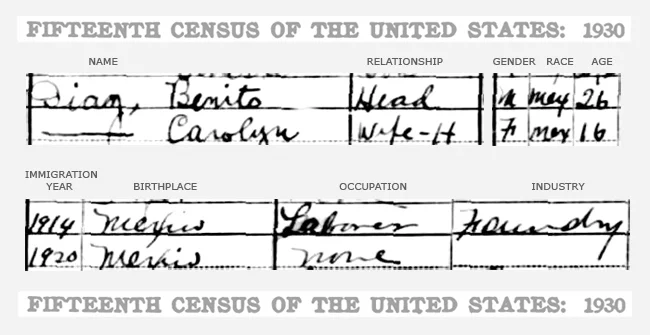 FIFTEENTH CENSUS OF THE UNITED STATES: 1930
NAME RELATIONSHIP GENDER RACE AGE
Diaz, Benito Head M Mex 26
—— Carolyn Wife-H F Mex 16
IMMIGRATION YEAR BIRTHPLACE OCCUPATION INDUSTRY
1914 Mexico Laborer Foundry
1920 Mexico none
FIFTEENTH CENSUS OF THE UNITED STATES: 1930